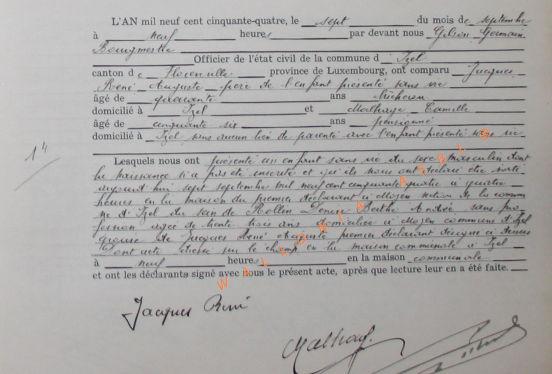 L'AN mil neuf cent cinquante-quatre, le sept du mois de septembre
à neuf heures par devant nous Gilson Germain
Bourgmestre
Officier de l'état civil de la commune d'Izel
canton de Florenville province de Luxembourg, ont comparu Jacques
René Auguste père de l'enfant présenté sans vie
âgé de quarante ans
domicilié à Izel et Camille
âgé de cinquante six ans pensionné
domicilié à Izel sans aucun lien de parenté avec l'enfant présenté sans vie
1
Lesquels nous ont présenté un enfant sans vie du sexe masculin dont
la naissance n'a pas été inscrite et qu'ils nous ont déclaré être sorti
aujourd'hui sept septembre mil neuf cent cinquante quatre à quatre
heures en la maison du premier déclarant à section de la commu
ne d'Izel du sein de Denise Berthe sans pro
fession âgée de trente trois ans domiciliée à commune d'Izel
épouse de Jacques René Auguste premier déclarant désigné ci dessus
Dont acte dressé sur le champ en la maison communale à Izel
à neuf heures en la maison communale
et ont les déclarants signé avec nous le présent acte, après que lecture leur en a été faite.
Jacques René